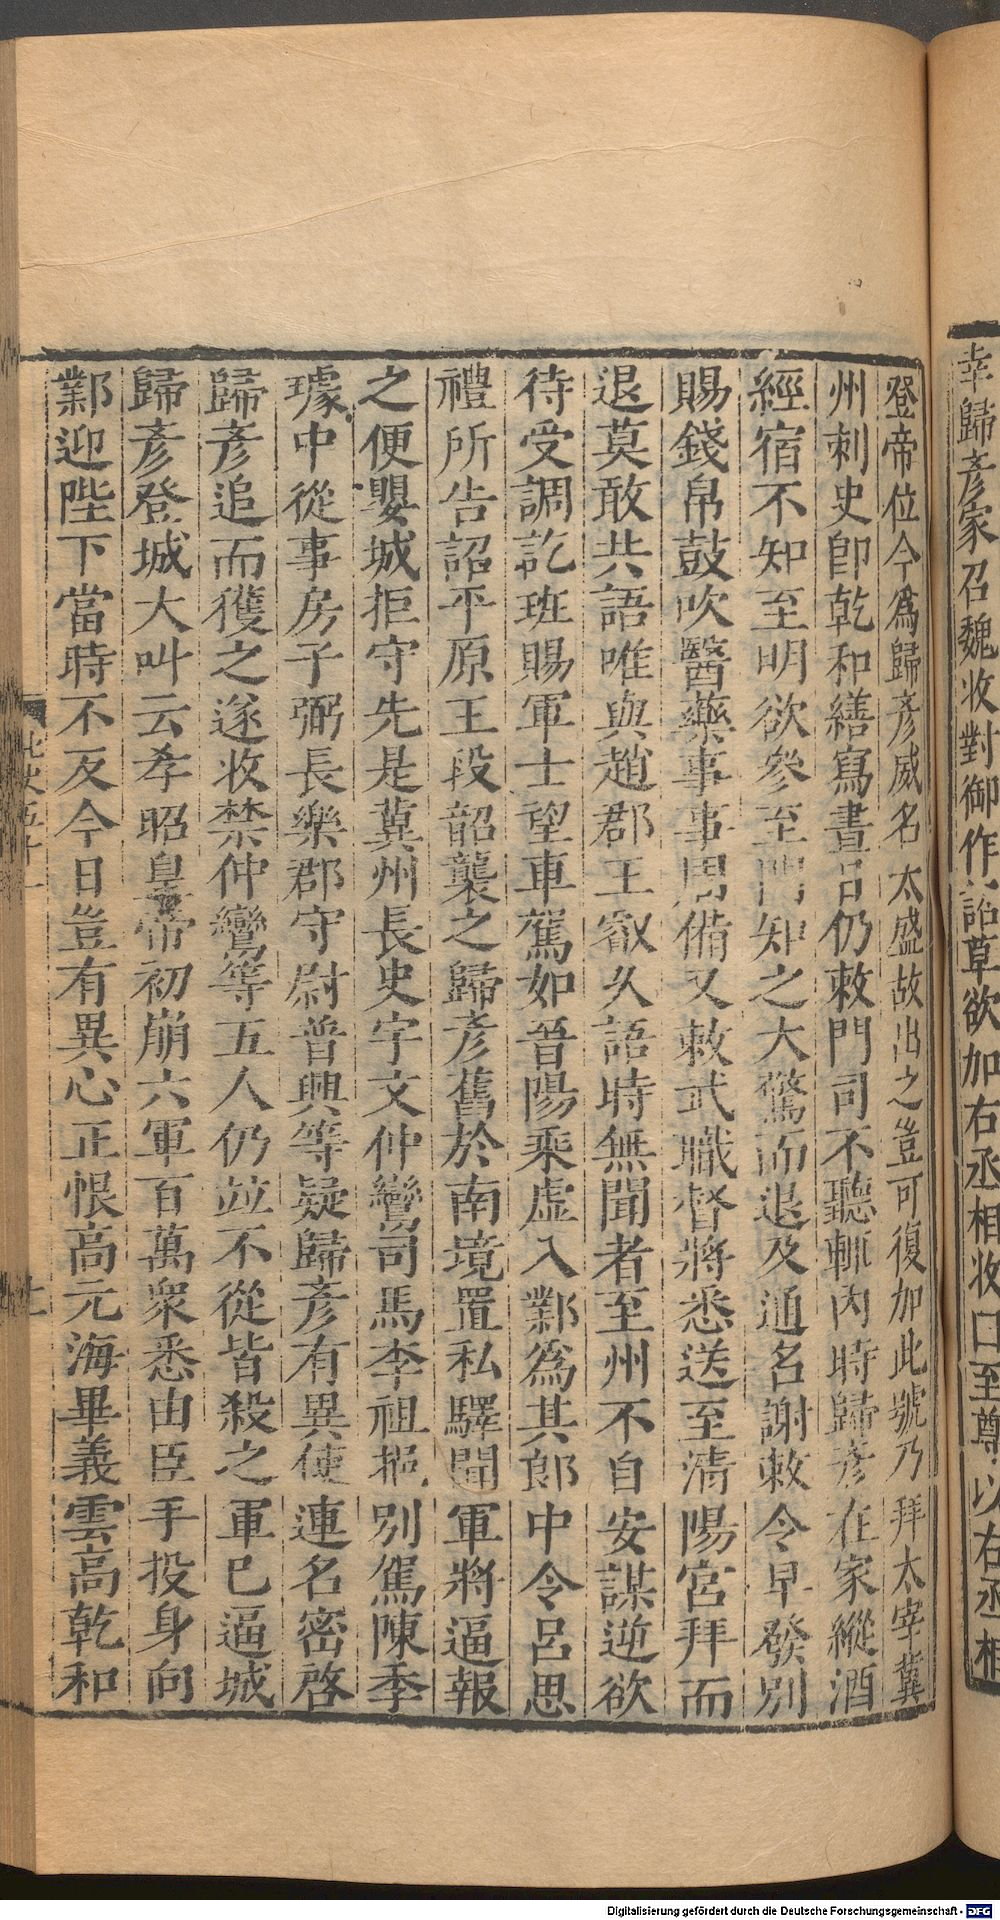 幸歸彥家召魏收對御作詔草欲加右丞相收口至尊以右丞相
登帝位今爲歸彥威名太盛故出之豈可復加此號乃拜太宰冀
州刺史卽乾和繕寫晝日仍敕門司不聽輒內時歸彥在家縱酒
經宿不知至明欲參至門知之大驚而退及通名謝敕令早發別
賜錢帛鼓吹醫藥事事周備又敕武職督將悉送至清陽宮拜而
退莫敢共語唯與趙郡王叡久語時無聞者至州不自安謀逆欲
待受調訖班賜軍士望車駕如晉陽乘虛入鄴爲其郎中令呂思
禮所告詔平原王段韶襲之歸彥舊於南境置私驛聞軍將逼報
之便嬰城拒守先是冀州長史宇文仲鸞司馬李祖挹別駕陳季
璩中從事房子弼長樂郡守尉普興等疑歸彥有異使連名密啓
歸彥追而獲之遂收禁仲鸞等五人仍竝不從皆殺之軍已逼城
歸彥登城大叫云孝昭皇帝初崩六軍百萬衆悉由臣手投身向
鄴迎陛下當時不反今日豈有異心正恨高元海畢義雲高乾和
北史五十一
Digitalisierung gefördert durch die Deutsche Forschungsgemeinschaft - DFG